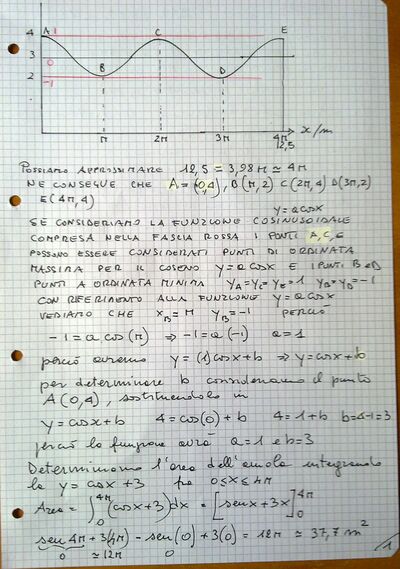 A 1 C E
4
3 0
2 B D
-1
π 2π 3π 4π x/m
12,5
POSSIAMO APPROSSIMARE 12,5 = 3,98π ≃ 4π
NE CONSEGUE CHE A=(0,4), B(π,2) C(2π,4) D(3π,2)
E(4π,4)
y=acosx
SE CONSIDERIAMO LA FUNZIONE COSINUSOIDALE
COMPRESA NELLA FASCIA ROSSA I PONTI A,C,E
POSSONO ESSERE CONSIDERATI PUNTI DI ORDINATA
MASSIMA PER IL COSENO y=acosx E I PUNTI B e D
PUNTI A ORDINATA MINIMA yA=yC=yE=1 yB=yD=-1
CON RIFERIMENTO ALLA FUNZIONE y=acosx
VEDIAMO CHE xB=π yB=-1 PERCIÒ
-1=acos(π) ⇒ -1=a(-1) a=1
perciò avremo y=(1)cosx+b ⇒ y=cosx+b
per determinare b consideriamo il punto
A(0,4), sostituendolo in
y=cosx+b 4=cos(0)+b 4=1+b b=4-1=3
perciò la funzione avrà a=1 e b=3
Determiniamo l'area dell'aiuola integrando
la y=cosx+3 fra 0≤x≤4π
Area = ∫₀^4π (cosx+3)dx = [senx+3x]₀^4π
sen4π+3(4π)-sen(0)+3(0)=12π≃37,7 m²
0 ≃12π 0
1